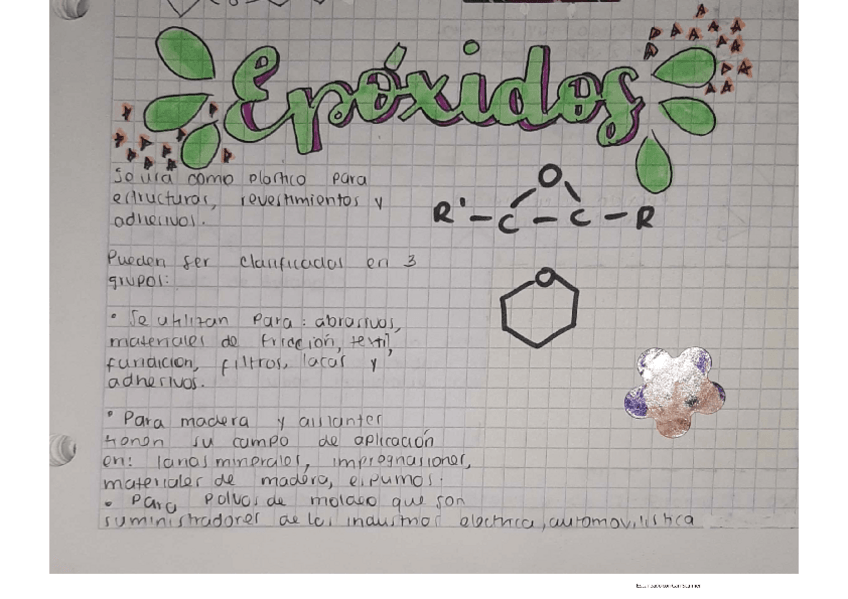 Epóxidos
Se usa como plastico para
estructuras, revestimientos y
adhesivos.
O
R' - C - C - R
Pueden ser clasificados en 3
grupos:
O
• Se utilizan para: abrasivos,
materiales de fricción, textil,
fundicion, filtros, lacas y
adhesivos.
• Para madera y aislantes
tienen su campo de aplicación
en: lanas minerales, impregnasiones,
materiales de madera, espumas.
• Para polvos de moldeo que son
suministradores de la industrias electrica, automovilistica